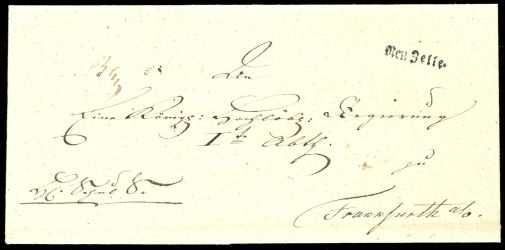 Neu Zelle.
An
Eine Königl: Hochlöbl: Regierung
I te Abth.
zu
Frankfurth a/o.
H. Schul S.